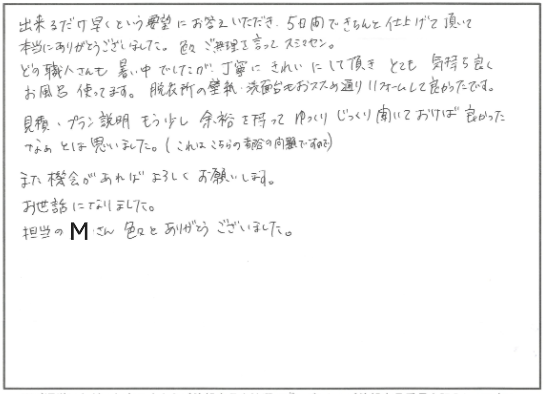 出来るだけ早くという要望にお答えいただき、5日間できちんと仕上げて頂いて
本当にありがとうございました。色々ご無理を言ってスミマセン。
どの職人さんも暑い中でしたが、丁寧にきれいにして頂きとても気持ち良く
お風呂使ってます。脱衣所の壁紙・洗面台もおススめ通りリフォームして良かったです。
見積・プラン説明もう少し余裕を持ってゆっくりじっくり聞いておけば良かった
なぁとは思いました。(これはこちらの都合の問題ですので)
また機会があればよろしくお願いします。
お世話になりました。
担当のMさん色々とありがとうございました。